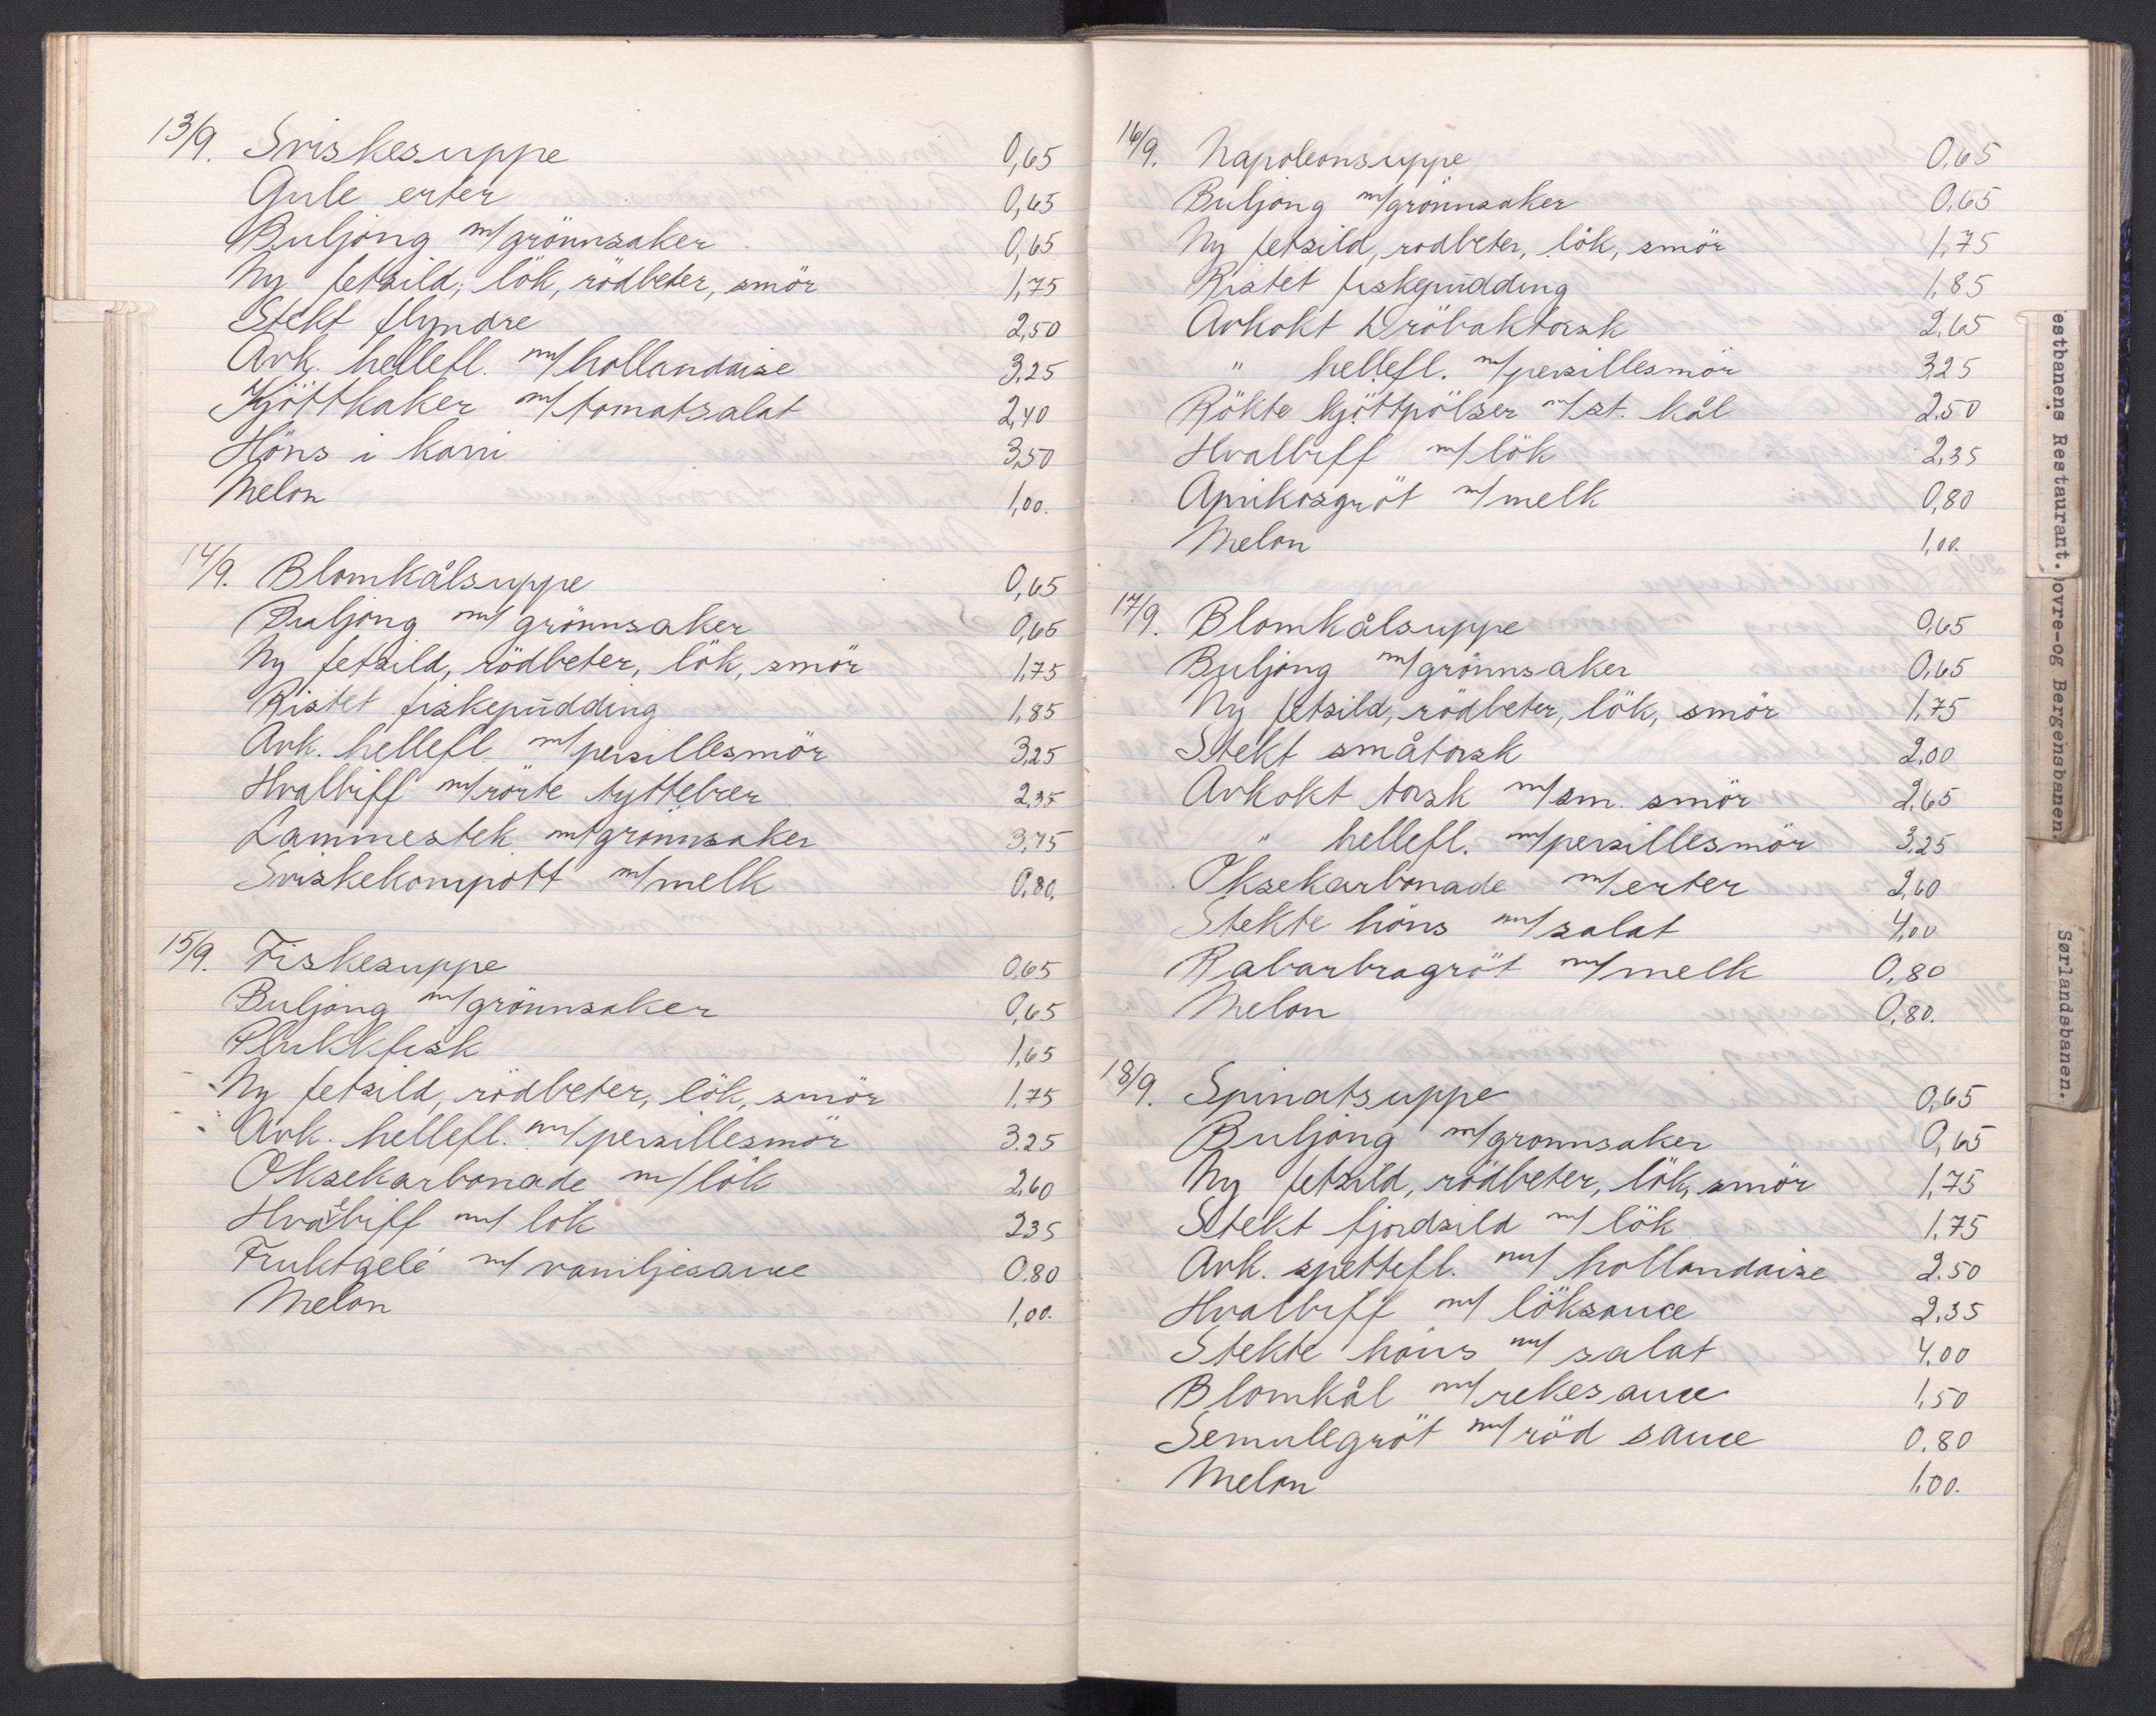 13/9. Sviskesuppe 0,65
Gule erter 0,65
Buljong m/grönnsaker 0,65
Ny fetsild, lök, rödbeter, smör 1,75
Stekt flyndre 2,50
Avk. hellefl. m/hollandaise 3,25
Kjöttkaker m/tomatsalat 2,40
Höns i karri 3,50
Melon 1,00.
14/9. Blomkålsuppe 0,65
Buljong m/grönnsaker 0,65
Ny fetsild, rödbeter, lök, smör 1,75
Ristet fiskepudding 1,85
Avk. hellefl. m/persillesmör 3,25
Hvalbiff m/rörte tyttebær 2,35
Lammestek m/grönnsaker 3,75
Sviskekompott m/melk 0,80.
15/9. Fiskesuppe 0,65
Buljong m/grönnsaker 0,65
Plukkfisk 1,65
Ny fetsild, rödbeter, lök, smör 1,75
Avk. hellefl. m/persillesmör 3.25
Oksekarbonade m/lök 2,60
Hvalbiff m/lök 2,35
Fruktgelé m/vaniljesauce 0.80
Melon 1,00.
16/9. Napoleonsuppe 0,65
Buljong m/grönnsaker 0,65
Ny fetsild, rödbeter, lök, smör 1,75
Ristet fiskepudding 1,85
Avkokt Dröbaktorsk 2,65
" hellefl. m/persillesmör 3,25
Rökte kjöttpölser m/st. kål 2,50
Hvalbiff m/lök 2,35
Aprikosgröt m/melk 0,80
Melon 1,00.
17/9. Blomkålsuppe 0,65
Buljong m/grönnsaker 0,65
Ny fetsild, rödbeter, lök, smör 1,75
Stekt småtorsk 2,00
Avkokt torsk m/sm. smör 2,65
" hellefl. m/persillesmör 3,25
Oksekarbonade m/erter 2,60
Stekte höns m/salat 4,00
Rabarbragröt m/melk 0,80
Melon 0,80.
18/9. Spinatsuppe 0,65
Buljong m/grönnsaker 0,65
Ny fetsild, rödbeter, lök, smör 1,75
Stekt fjordsild m/lök 1,75
Avk. spettefl. m/hollandaise 2.50
Hvalbiff m/löksauce 2,35
Stekte höns m/salat 4,00
Blomkål m/rekesauce 1,50
Semulegröt m/röd sauce 0,80
Melon 1,00.
estbanens Restaurant.
ovre-og Bergensbanen.
Sørlandsbanen.